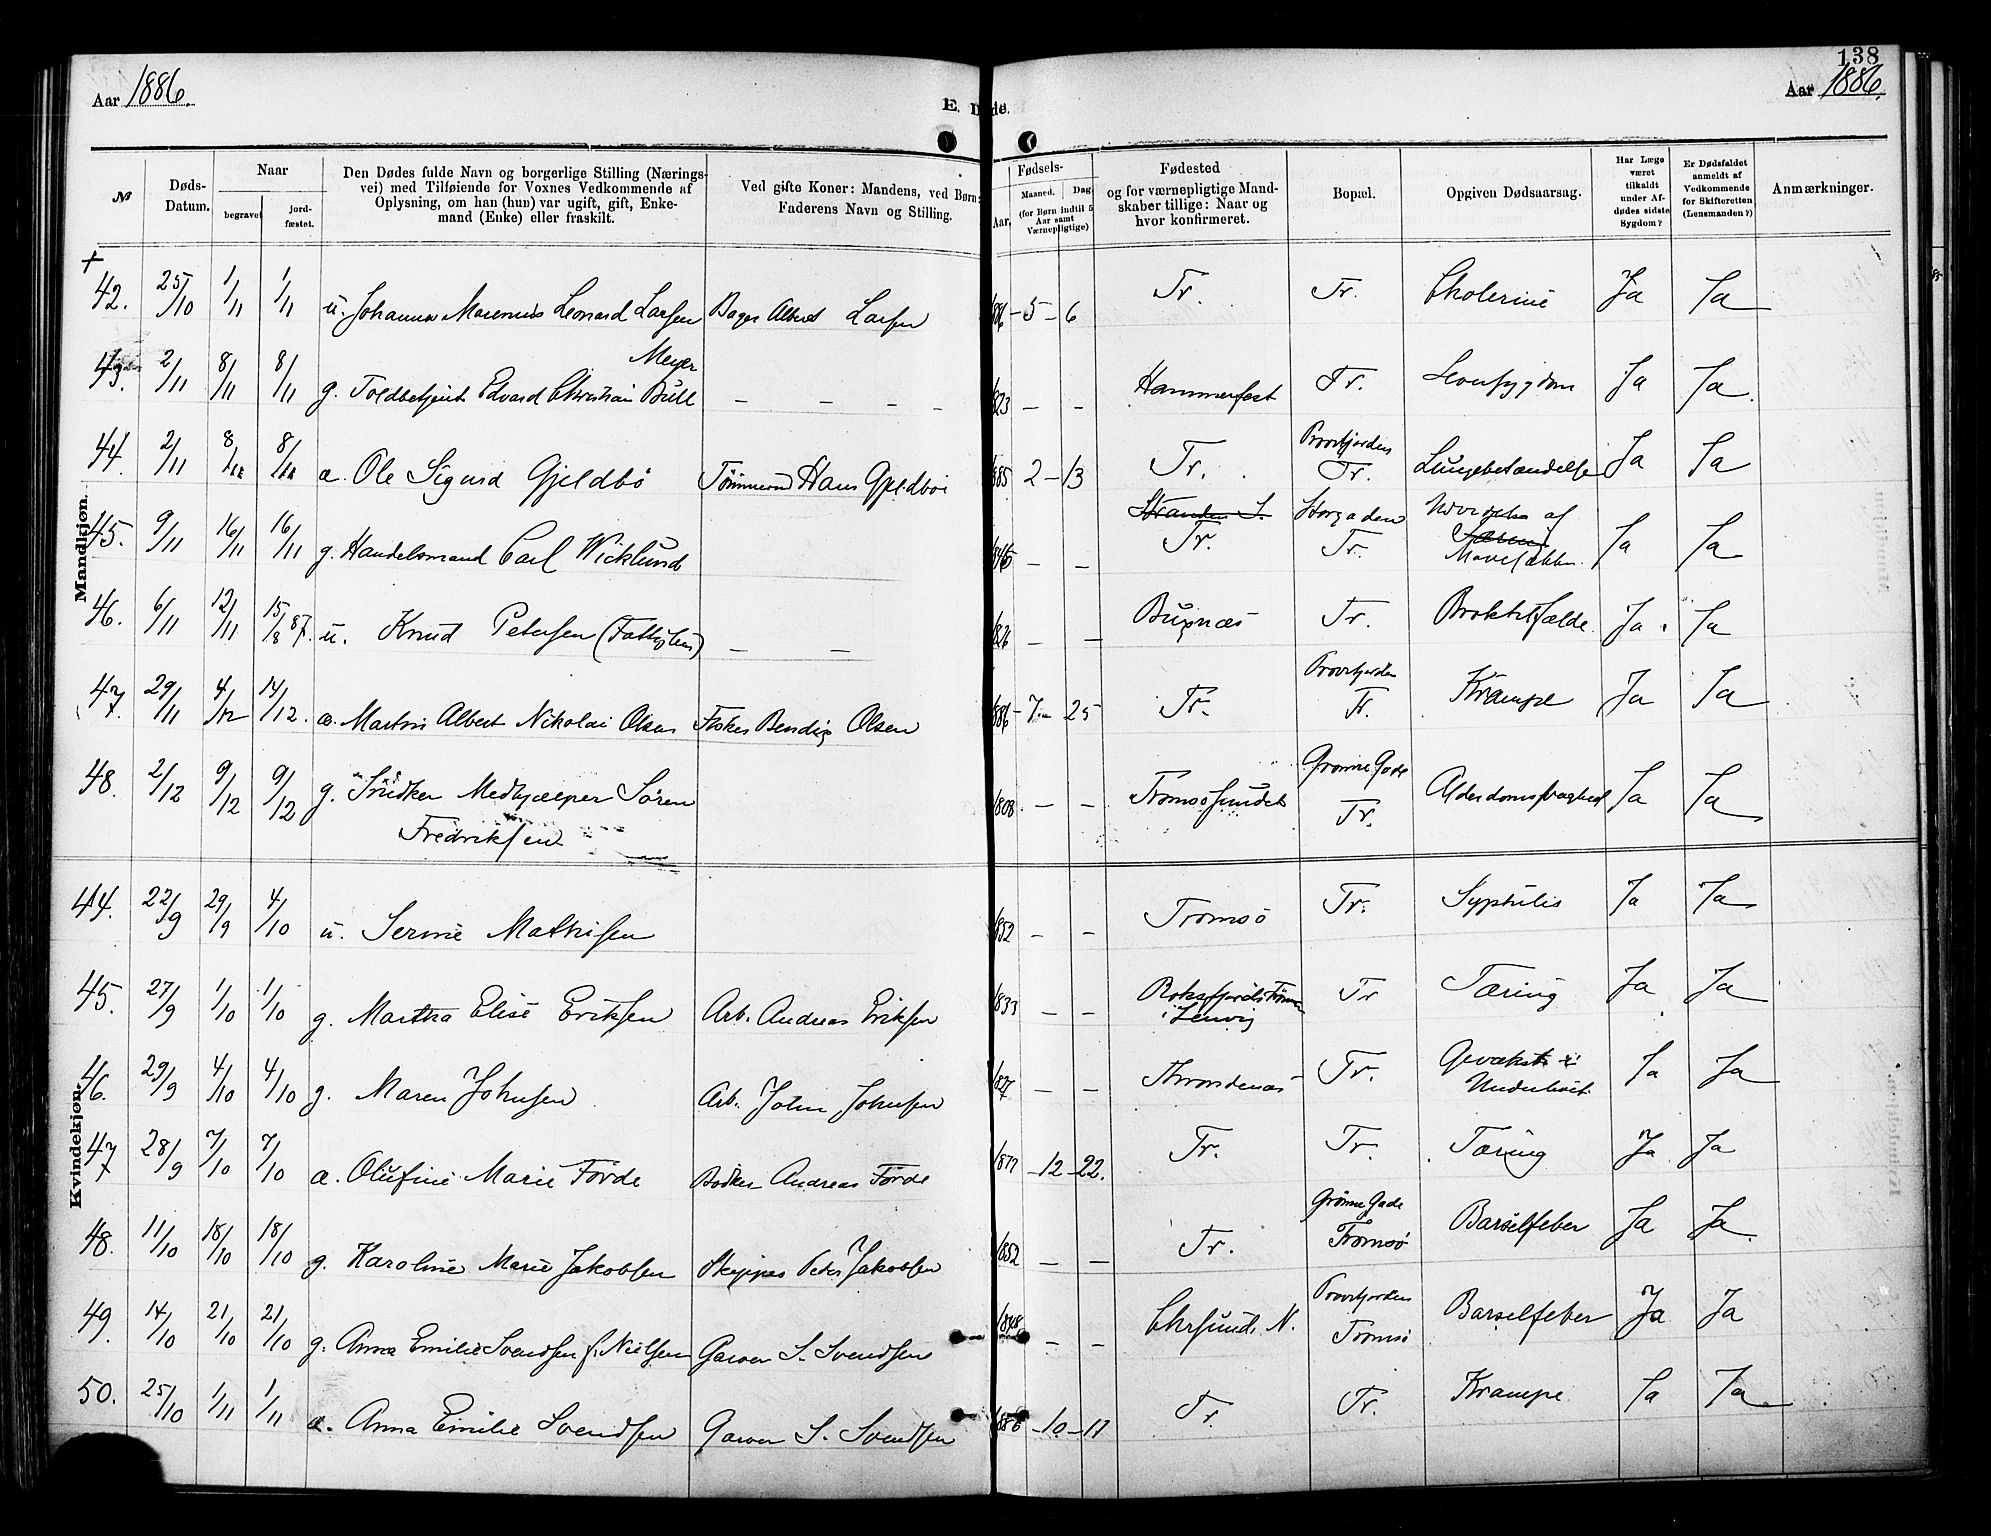 138
Aar 1886.
E. Døde.
Aar 1886.
№
Døds-Datum.
Naar
begravet
jordfæstet.
Den Dødes fulde Navn og borgerlige Stilling (Nærings-
vei) med Tilføiende for Voxnes Vedkommende af
Oplysning, om han (hun) var ugift, gift, Enke-
mand (Enke) eller fraskilt.
Ved gifte Koner: Mandens, ved Børn:
Faderens Navn og Stilling.
Fødsels-
Aar.
Maaned.
Dag.
(for Børn indtil 5
Aar samt
Værnepligtige)
Fødested
og for værnepligtige Mand-
skaber tillige: Naar og
hvor konfirmeret.
Bopæl.
Opgiven Dødsaarsag.
Har Læge
været
tilkaldt
under Af-
dødes sidste
Sygdom?
Er Dødsfaldet
anmeldt af
Vedkommende
for Skifteretten
(Lensmanden?)
Anmærkninger.
Mandkjøn.
42. 25/10 1/11 1/11 u. Johannes Marenius Leonard Larsen Bager Albert Larsen 1886 - 5 - 6 Tr. Tr. Cholerine Ja Ja
43. 2/11 8/11 8/11 g. Toldbetjent Edvard Christian Meyer Bull — — — — 1823 — — Hammerfest Tr. Ja Ja.
44. 2/11 8/11 8/11 a. Ole Sigurd Gjeldbö Hans Gjeldbö 1885 2 - 13 Tr. Tr. Lungebetændelse Ja Ja
45. 9/11 16/11 16/11 g. Handelsmand Carl Wicklund — — Tr. Storgaden Tr. af Ja Ja
46. 6/11 12/11 15/8 87. u. Knud Petersen — — 1826 — — Tr. Broktilfælde Ja. Ja
47. 29/11 4/12 14/12. a. Martin Albert Nikolai Olsen Fisker Olsen 1886 - 7 - 25 Tr. Tr. Krampe Ja Ja
48. 2/12 9/12 9/12 g. Snedker Medhjælper Sören Fredriksen 1808. — — Tromsösundet Grönne Gade Tr. Alderdomssvaghed Ja Ja
Kvindekjøn.
44. 22/9 29/9 4/10 u. Serine Mathisen 1852 — — Tromsö Tr. Syphilis Ja Ja
45. 27/9 1/10 1/10 g. Martha Elise Eriksen Arb. Andreas Eriksen 1833 — — i Lenvig Tr Tæring Ja Ja
46. 29/9 4/10 4/10 g. Maren Johnsen Arb. John Johnsen 1827 — — Throndenæs Tr. Gevækst i Underlivet Ja Ja
47 28/9 7/10 7/10 a. Olufine Marie Förde Bödker Andreas Förde 1877 - 12 - 22. Tr. Tr. Tæring Ja Ja
48. 11/10 18/10 18/10 g. Karoline Marie Jakobsen Skipper Peter Jakobsen 1852 — — Tr. Grönne Gade Tromsö Barselfeber Ja Ja.
49. 14/10 21/10 21/10 g. Anna Emilie Svendsen f. Nielsen Garver S. Svendsen 1848 — — Chrsund. N. Tromsö Barselfeber Ja Ja
50. 25/10 1/11 1/11 a. Anna Emilie Svendsen Garver S. Svendsen 1886 - 10 - 11 Tr. Tr. Krampe Ja Ja